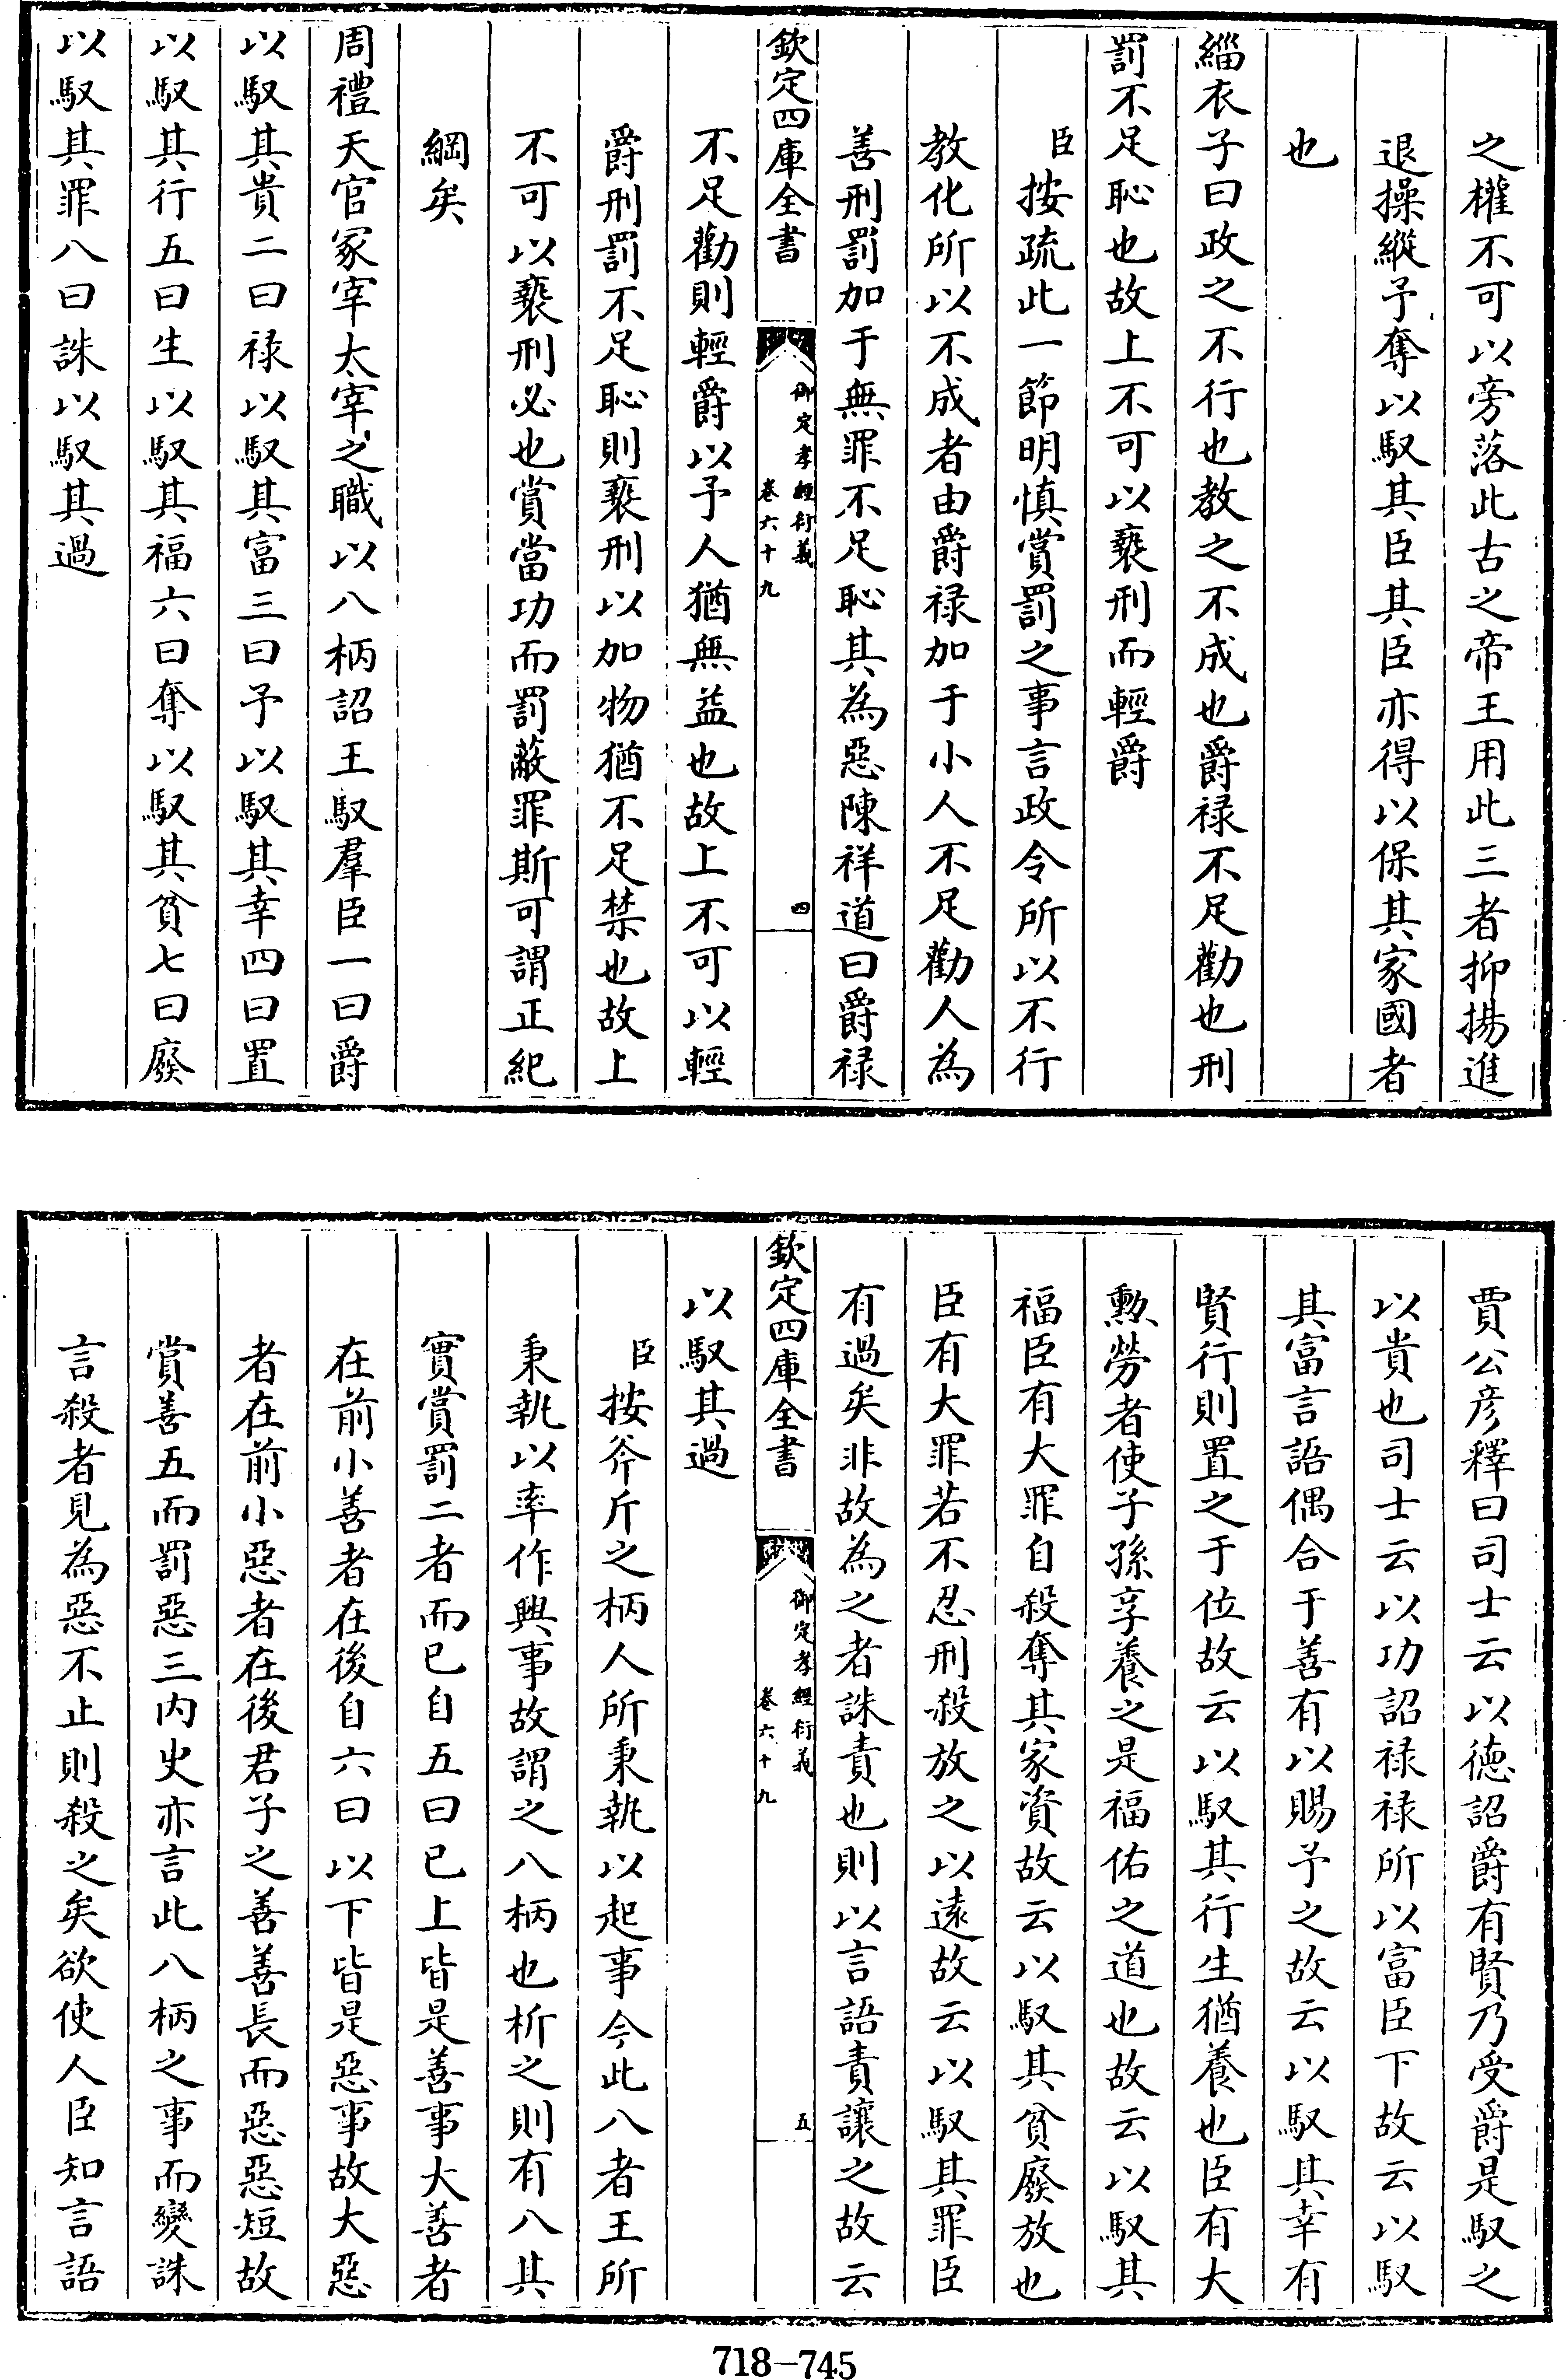 之權不可以旁落此古之帝王用此三者抑揚進
退操縱予奪以馭其臣其臣亦得以保其家國者
也
緇衣子曰政之不行也教之不成也爵祿不足勸也刑
罰不足恥也故上不可以褻刑而輕爵
臣按疏此一節明慎賞罰之事言政令所以不行
教化所以不成者由爵祿加于小人不足勸人為
善刑罰加于無罪不足恥其為惡陳祥道曰爵祿
欽定四庫全書
御定孝經衍義
卷六十九
四
不足勸則輕爵以予人猶無益也故上不可以輕
爵刑罰不足恥則褻刑以加物猶不足禁也故上
不可以褻刑必也賞當功而罰蔽罪斯可謂正紀
綱矣
周禮天官冢宰太宰之職以八柄詔王馭羣臣一曰爵
以馭其貴二曰祿以馭其富三曰予以馭其幸四曰置
以馭其行五曰生以馭其福六曰奪以馭其貧七曰廢
以馭其罪八曰誅以馭其過
賈公彥釋曰司士云以德詔爵有賢乃受爵是馭之
以貴也司士云以功詔祿祿所以富臣下故云以馭
其富言語偶合于善有以賜予之故云以馭其幸有
賢行則置之于位故云以馭其行生猶養也臣有大
勲勞者使子孫享養之是福佑之道也故云以馭其
福臣有大罪自殺奪其家資故云以馭其貧廢放也
臣有大罪若不忍刑殺放之以遠故云以馭其罪臣
有過矣非故為之者誅責也則以言語責讓之故云
欽定四庫全書
御定孝經衍義
卷六十九
五
以馭其過
臣按斧斤之柄人所秉執以起事今此八者王所
秉執以率作興事故謂之八柄也析之則有八其
實賞罰二者而已自五曰已上皆是善事大善者
在前小善者在後自六曰以下皆是惡事故大惡
者在前小惡者在後君子之善善長而惡惡短故
賞善五而罰惡三內史亦言此八柄之事而變誅
言殺者見為惡不止則殺之矣欲使人臣知言語
718—745